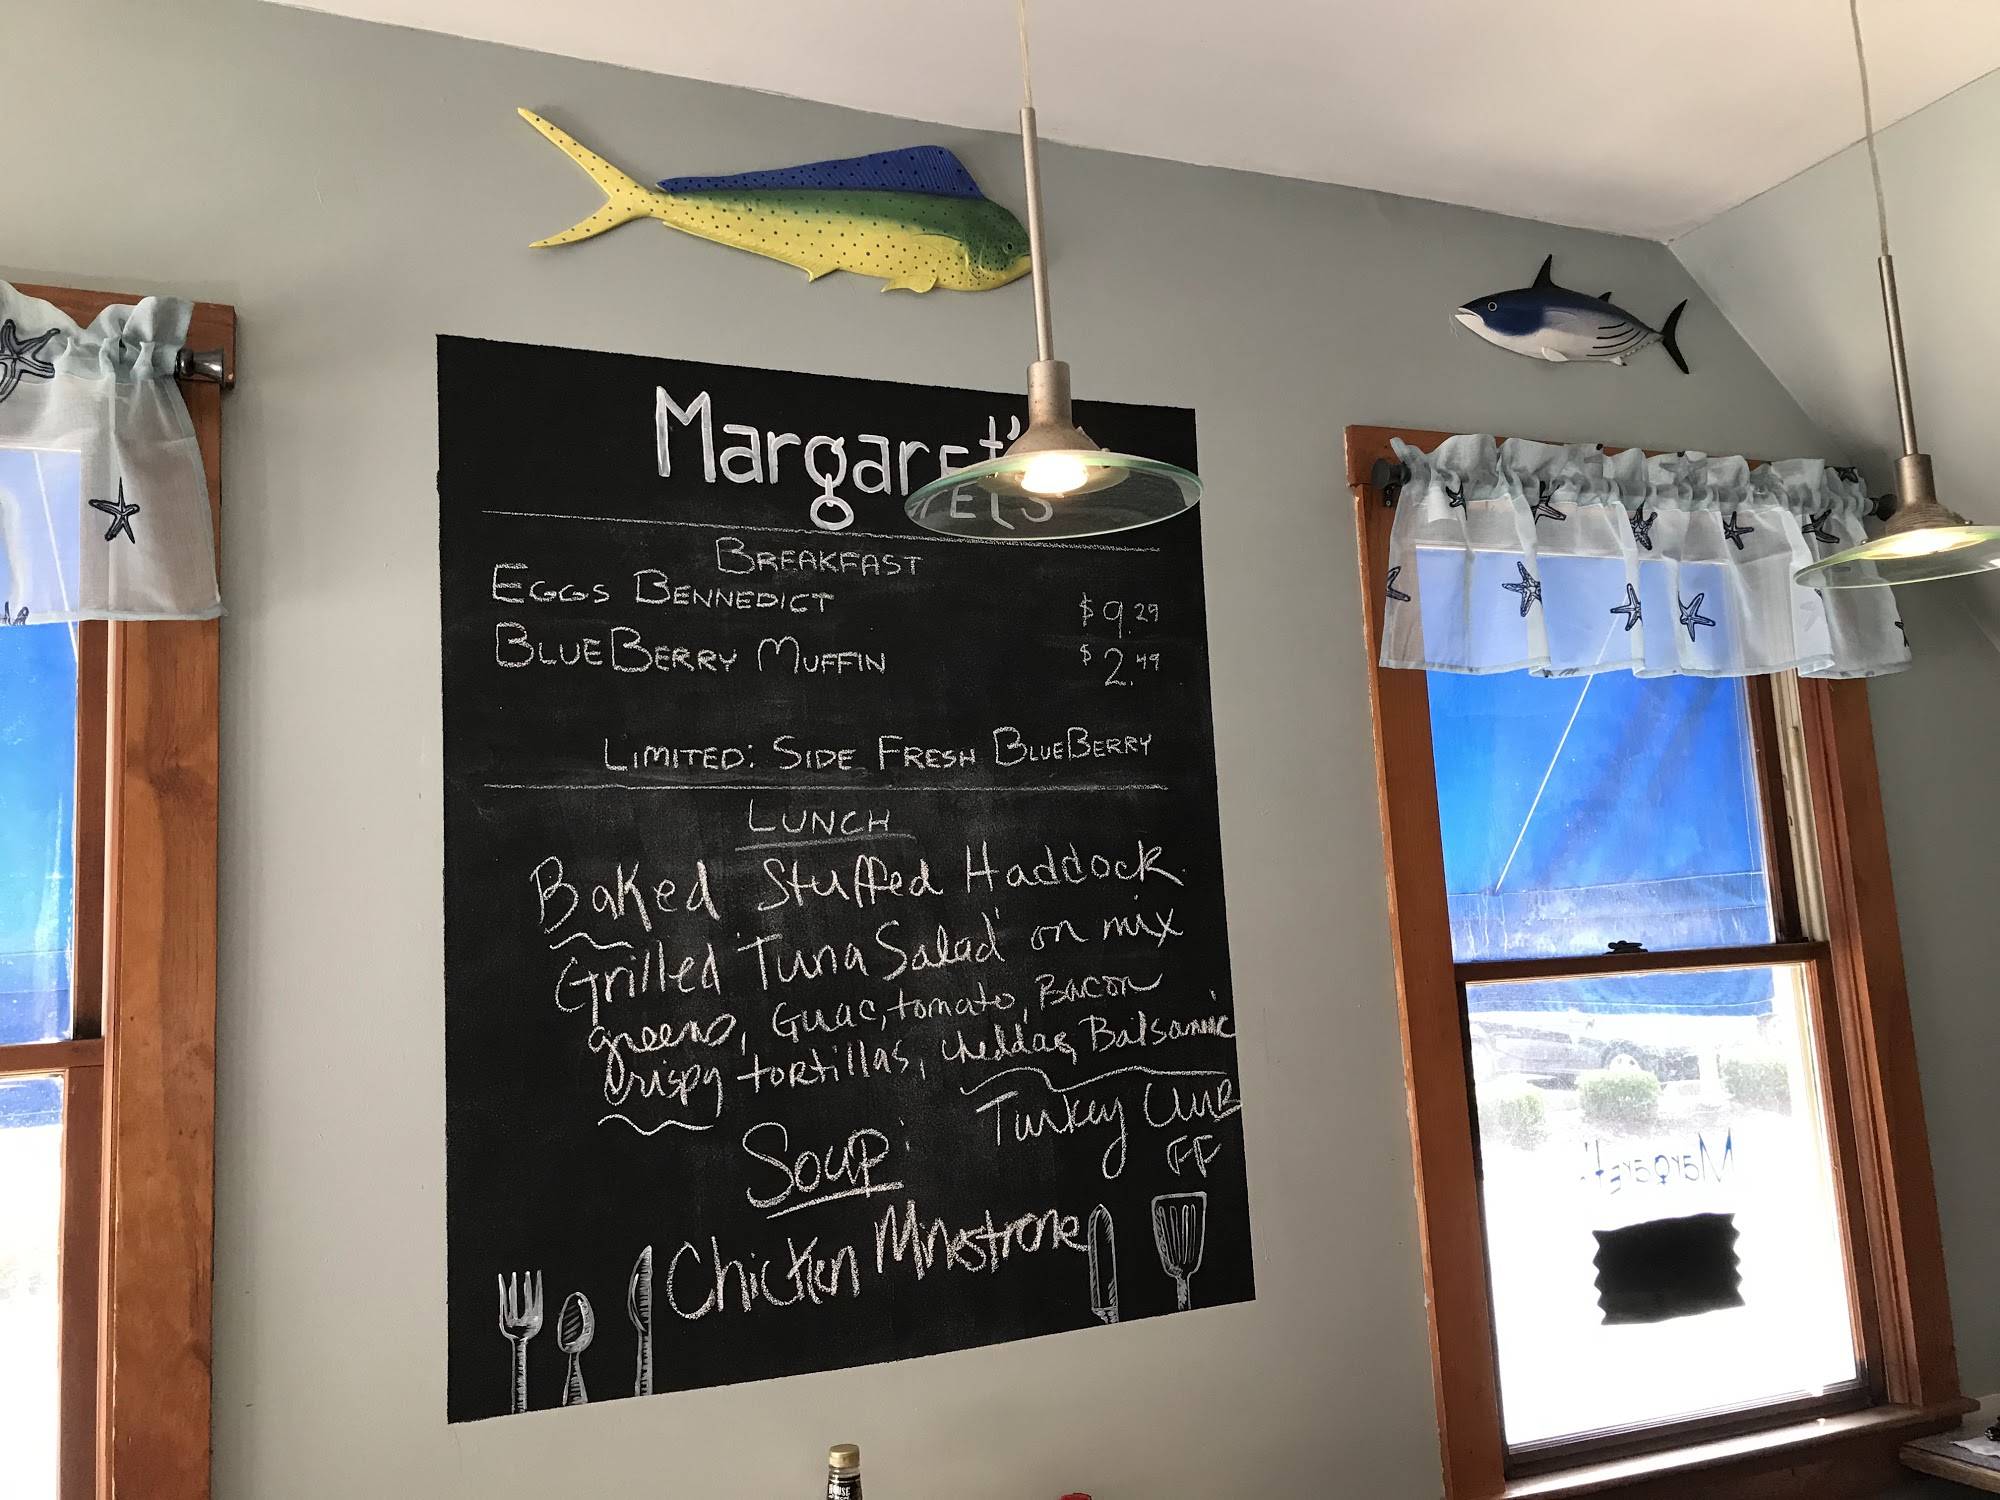 Margaret's
BREAKFAST
EGGS BENNEDICT $9.29
BLUEBERRY MUFFIN $2.49
LIMITED: SIDE FRESH BLUEBERRY
LUNCH
Baked Stuffed Haddock
Grilled "Tuna Salad" on mix
greens, Guac, tomato, Bacon
Crispy tortillas, cheddar, Balsamic
Turkey Club
FF
Soup:
Chicken Minestrone
Margaret's
HOUSE